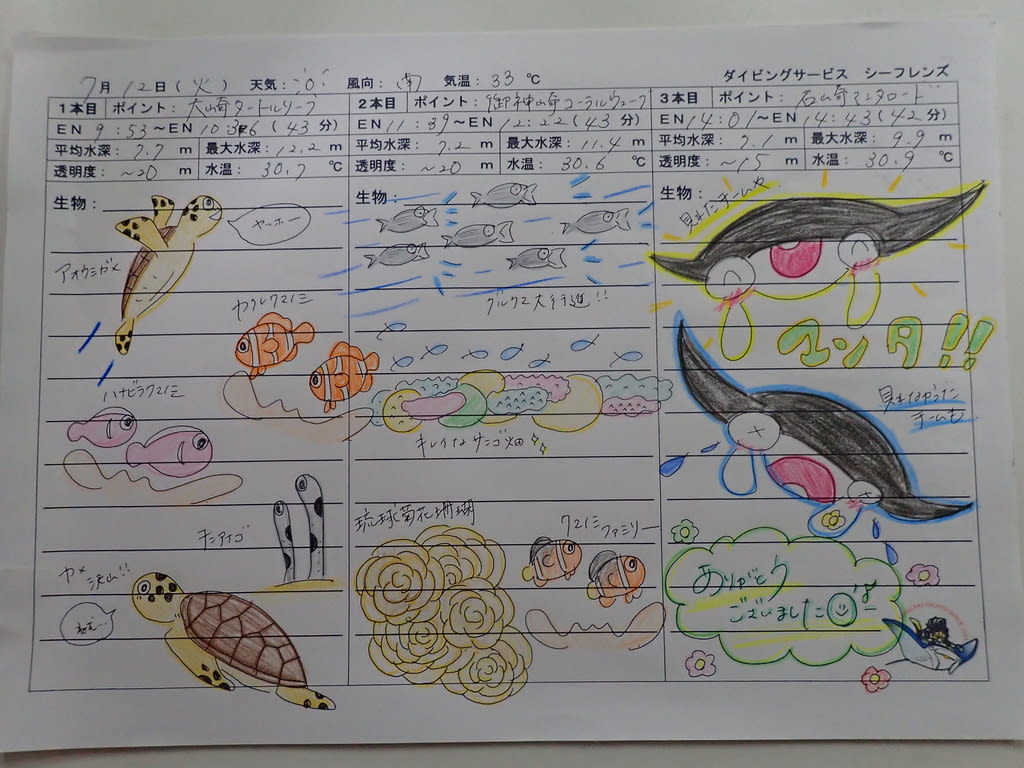 7月12日(火) 天気: 風向:南 気温:33℃ ダイビングサービス シーフレンズ
1本目 ポイント:大崎タートルリーフ
EN 9:53～EN 10:36(43分)
平均水深:7.7 m 最大水深:12.2 m
透明度:～20 m 水温:30.7 ℃
生物:
ヤッホー
アオウミガメ
カクレクマノミ
ハナビラクマノミ
チンアナゴ
カメ
沢山!!
ねぇ…
2本目 ポイント:御神崎コーラルウェーブ
EN 11:39～EN 12:22(43分)
平均水深:7.2 m 最大水深:11.4 m
透明度:～20 m 水温:30.6 ℃
生物:
グルクマ大行進!!
キレイなサンゴ畑
琉球菊花珊瑚
クマノミ
ファミリー
3本目 ポイント:石崎マンタロード
EN 14:01～EN 14:43(42分)
平均水深:7.1 m 最大水深:9.9 m
透明度:～15 m 水温:30.9 ℃
生物:
見れたチームや
マンタ!!
見れなかった
チームも
ありがとう
ございました